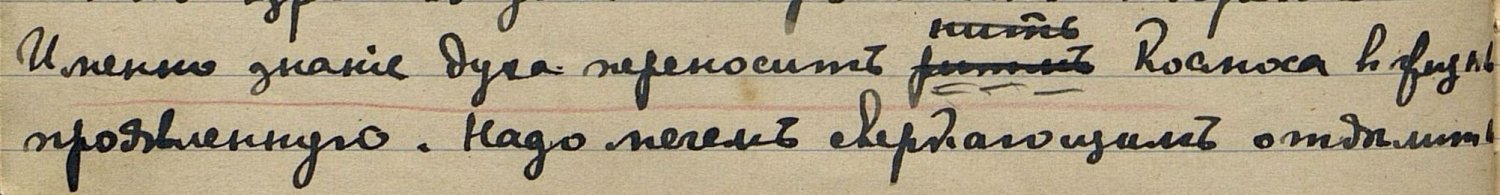 нить
Именно знаніе духа переноситъ ритмъ Космоса въ жизнь
проявленную. Надо мечемъ сверкающимъ отдѣлить